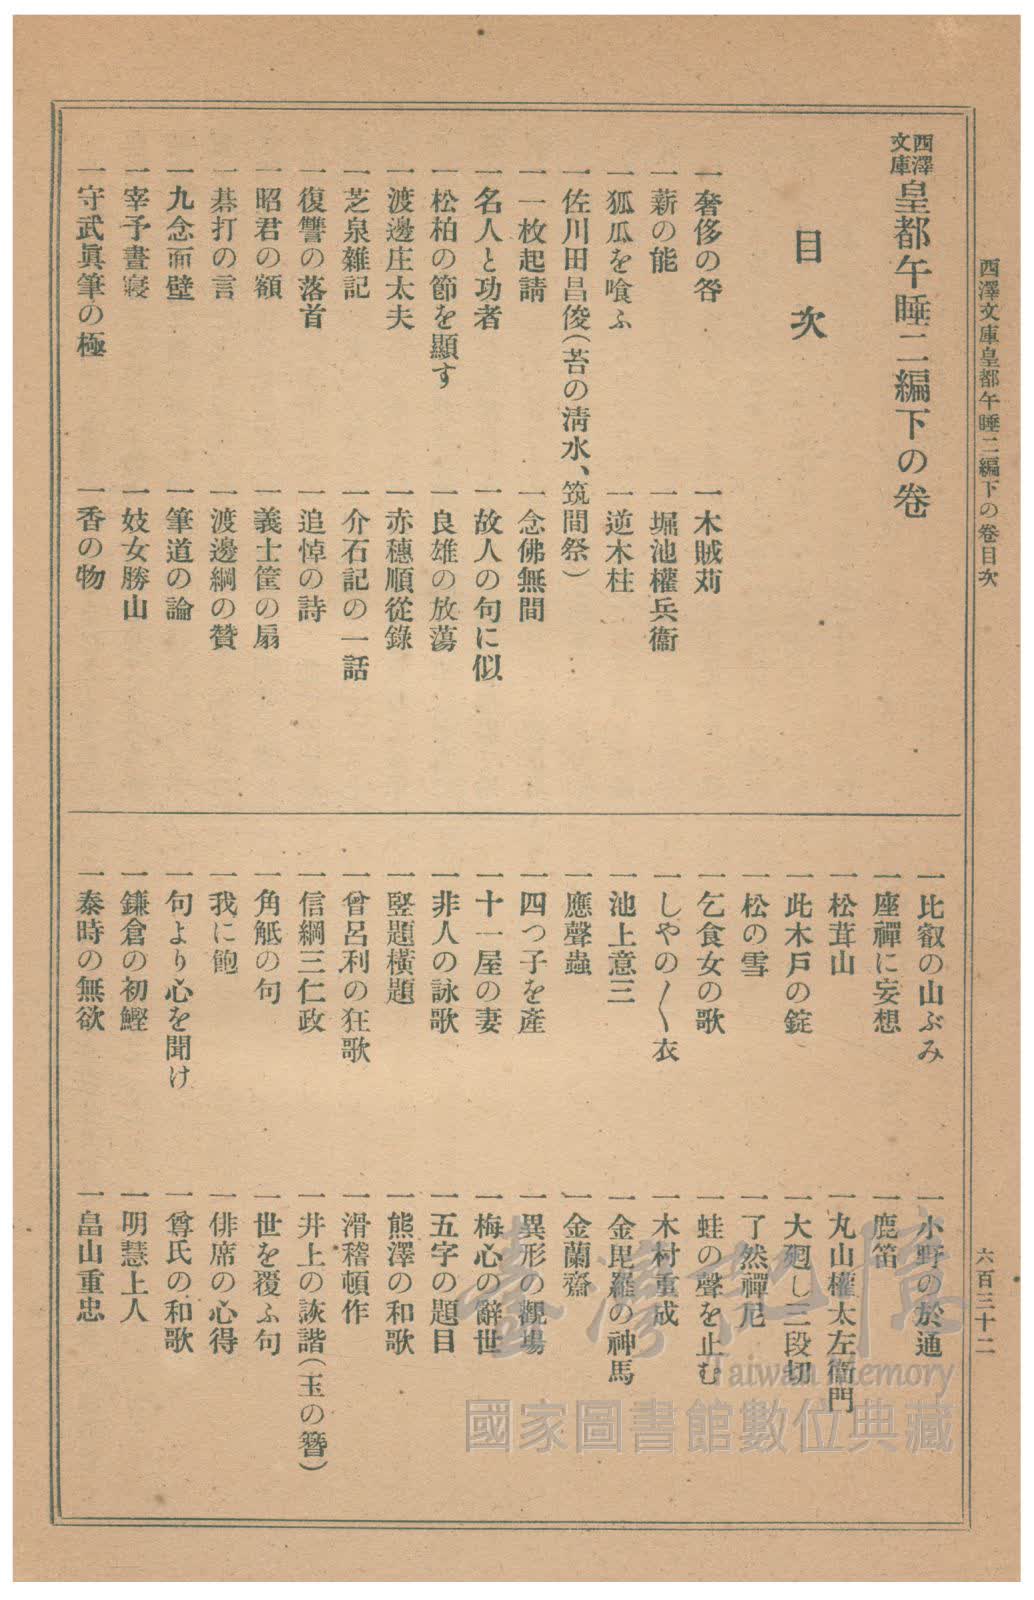 西澤文庫皇都午睡二編下の卷目次
六百三十二
西澤文庫 皇都午睡二編下の卷
目次
一奢侈の咎
一木賊苅
一薪の能
一堀池權兵衞
一狐瓜を喰ふ
一逆木柱
一佐川田昌俊(苔の淸水、筑間祭)
一一枚起請
一念佛無間
一名人と功者
一故人の句に似
一松柏の節を顯す
一良雄の放蕩
一渡邊庄太夫
一赤穗順從錄
一芝泉雜記
一介石記の一話
一復讐の落首
一追悼の詩
一昭君の額
一義士筐の扇
一碁打の言
一渡邊綱の贊
一九念面壁
一筆道の論
一宰予晝寢
一妓女勝山
一守武眞筆の極
一香の物
一比叡の山ぶみ
一小野の於通
一座禪に妄想
一鹿笛
一松茸山
一丸山權太左衞門
一此木戶の錠
一大廻し三段切
一松の雪
一了然禪尼
一乞食女の歌
一蛙の聲を止む
一しやの〱衣
一木村重成
一池上意三
一金毘羅の神馬
一應聲蟲
一金蘭齋
一四つ子を產
一異形の觀場
一十一屋の妻
一梅心の辭世
一非人の詠歌
一五字の題目
一竪題橫題
一熊澤の和歌
一曾呂利の狂歌
一滑稽頓作
一信綱三仁政
一井上の詼諧(玉の簪)
一角觝の句
一世を覆ふ句
一我に飽
一俳席の心得
一句より心を聞け
一尊氏の和歌
一鎌倉の初鰹
一明慧上人
一泰時の無欲
一畠山重忠
臺灣記憶
Taiwan Memory
國家圖書館數位典藏